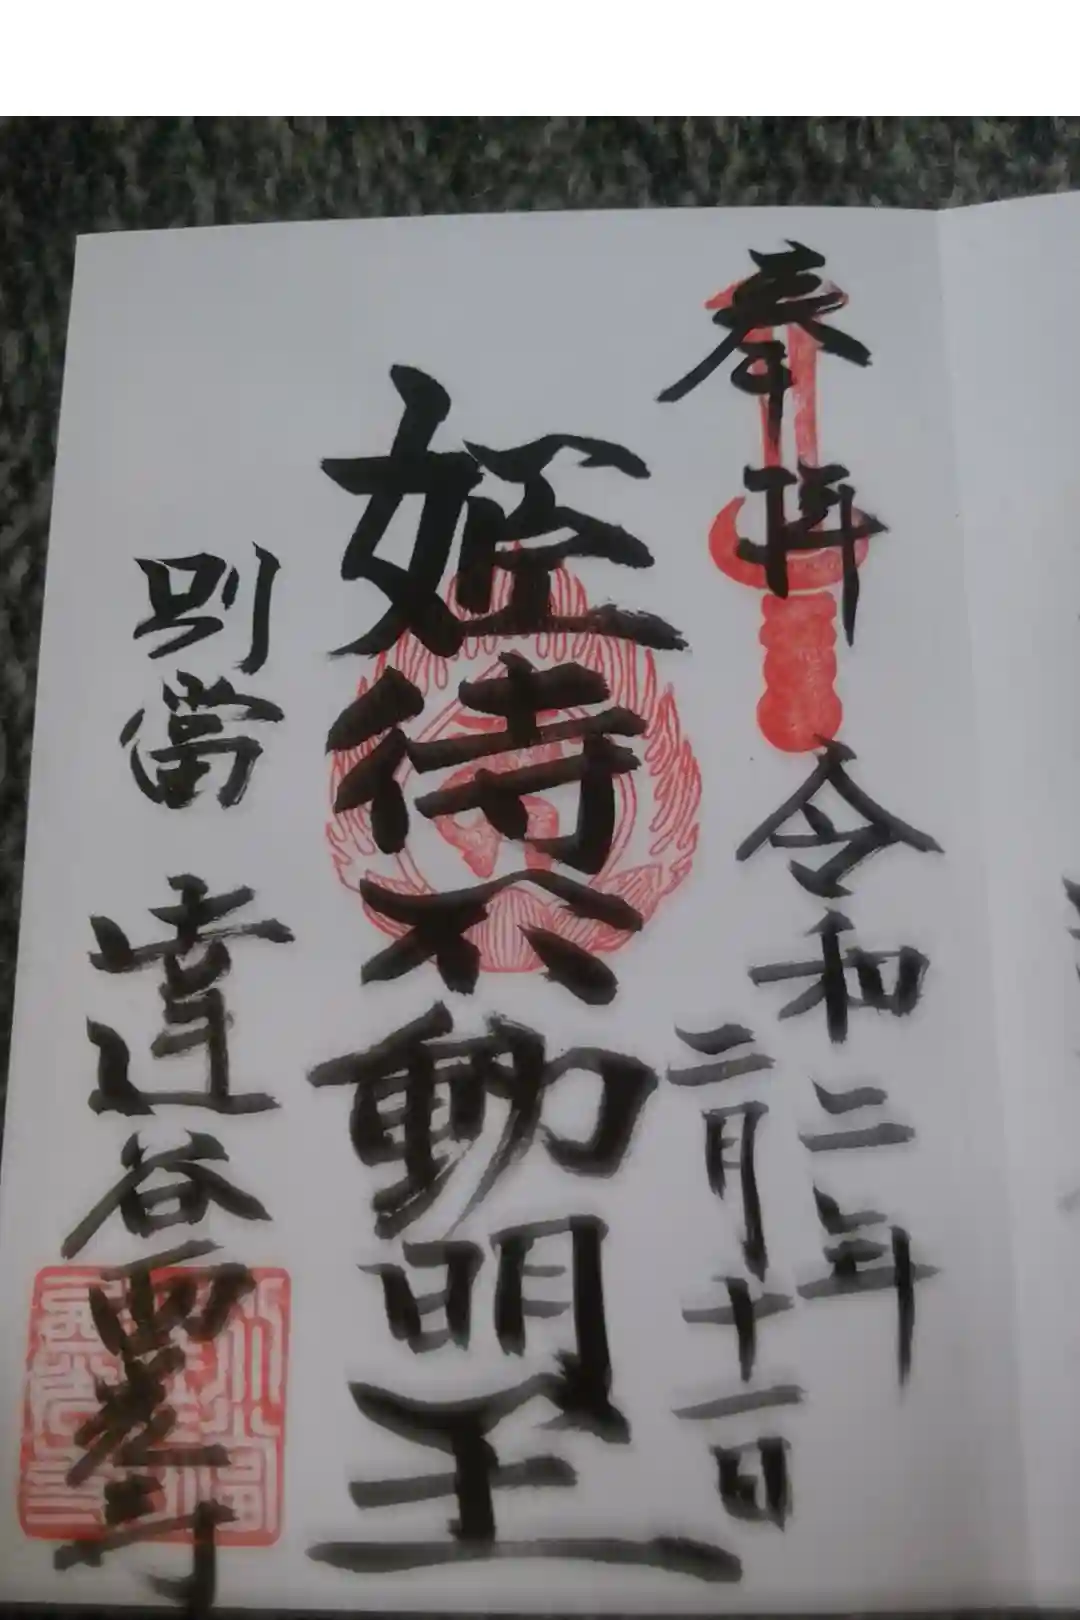 奉拝
令和二年
二月十一日
姫待不動明王
別當 達谷西光寺